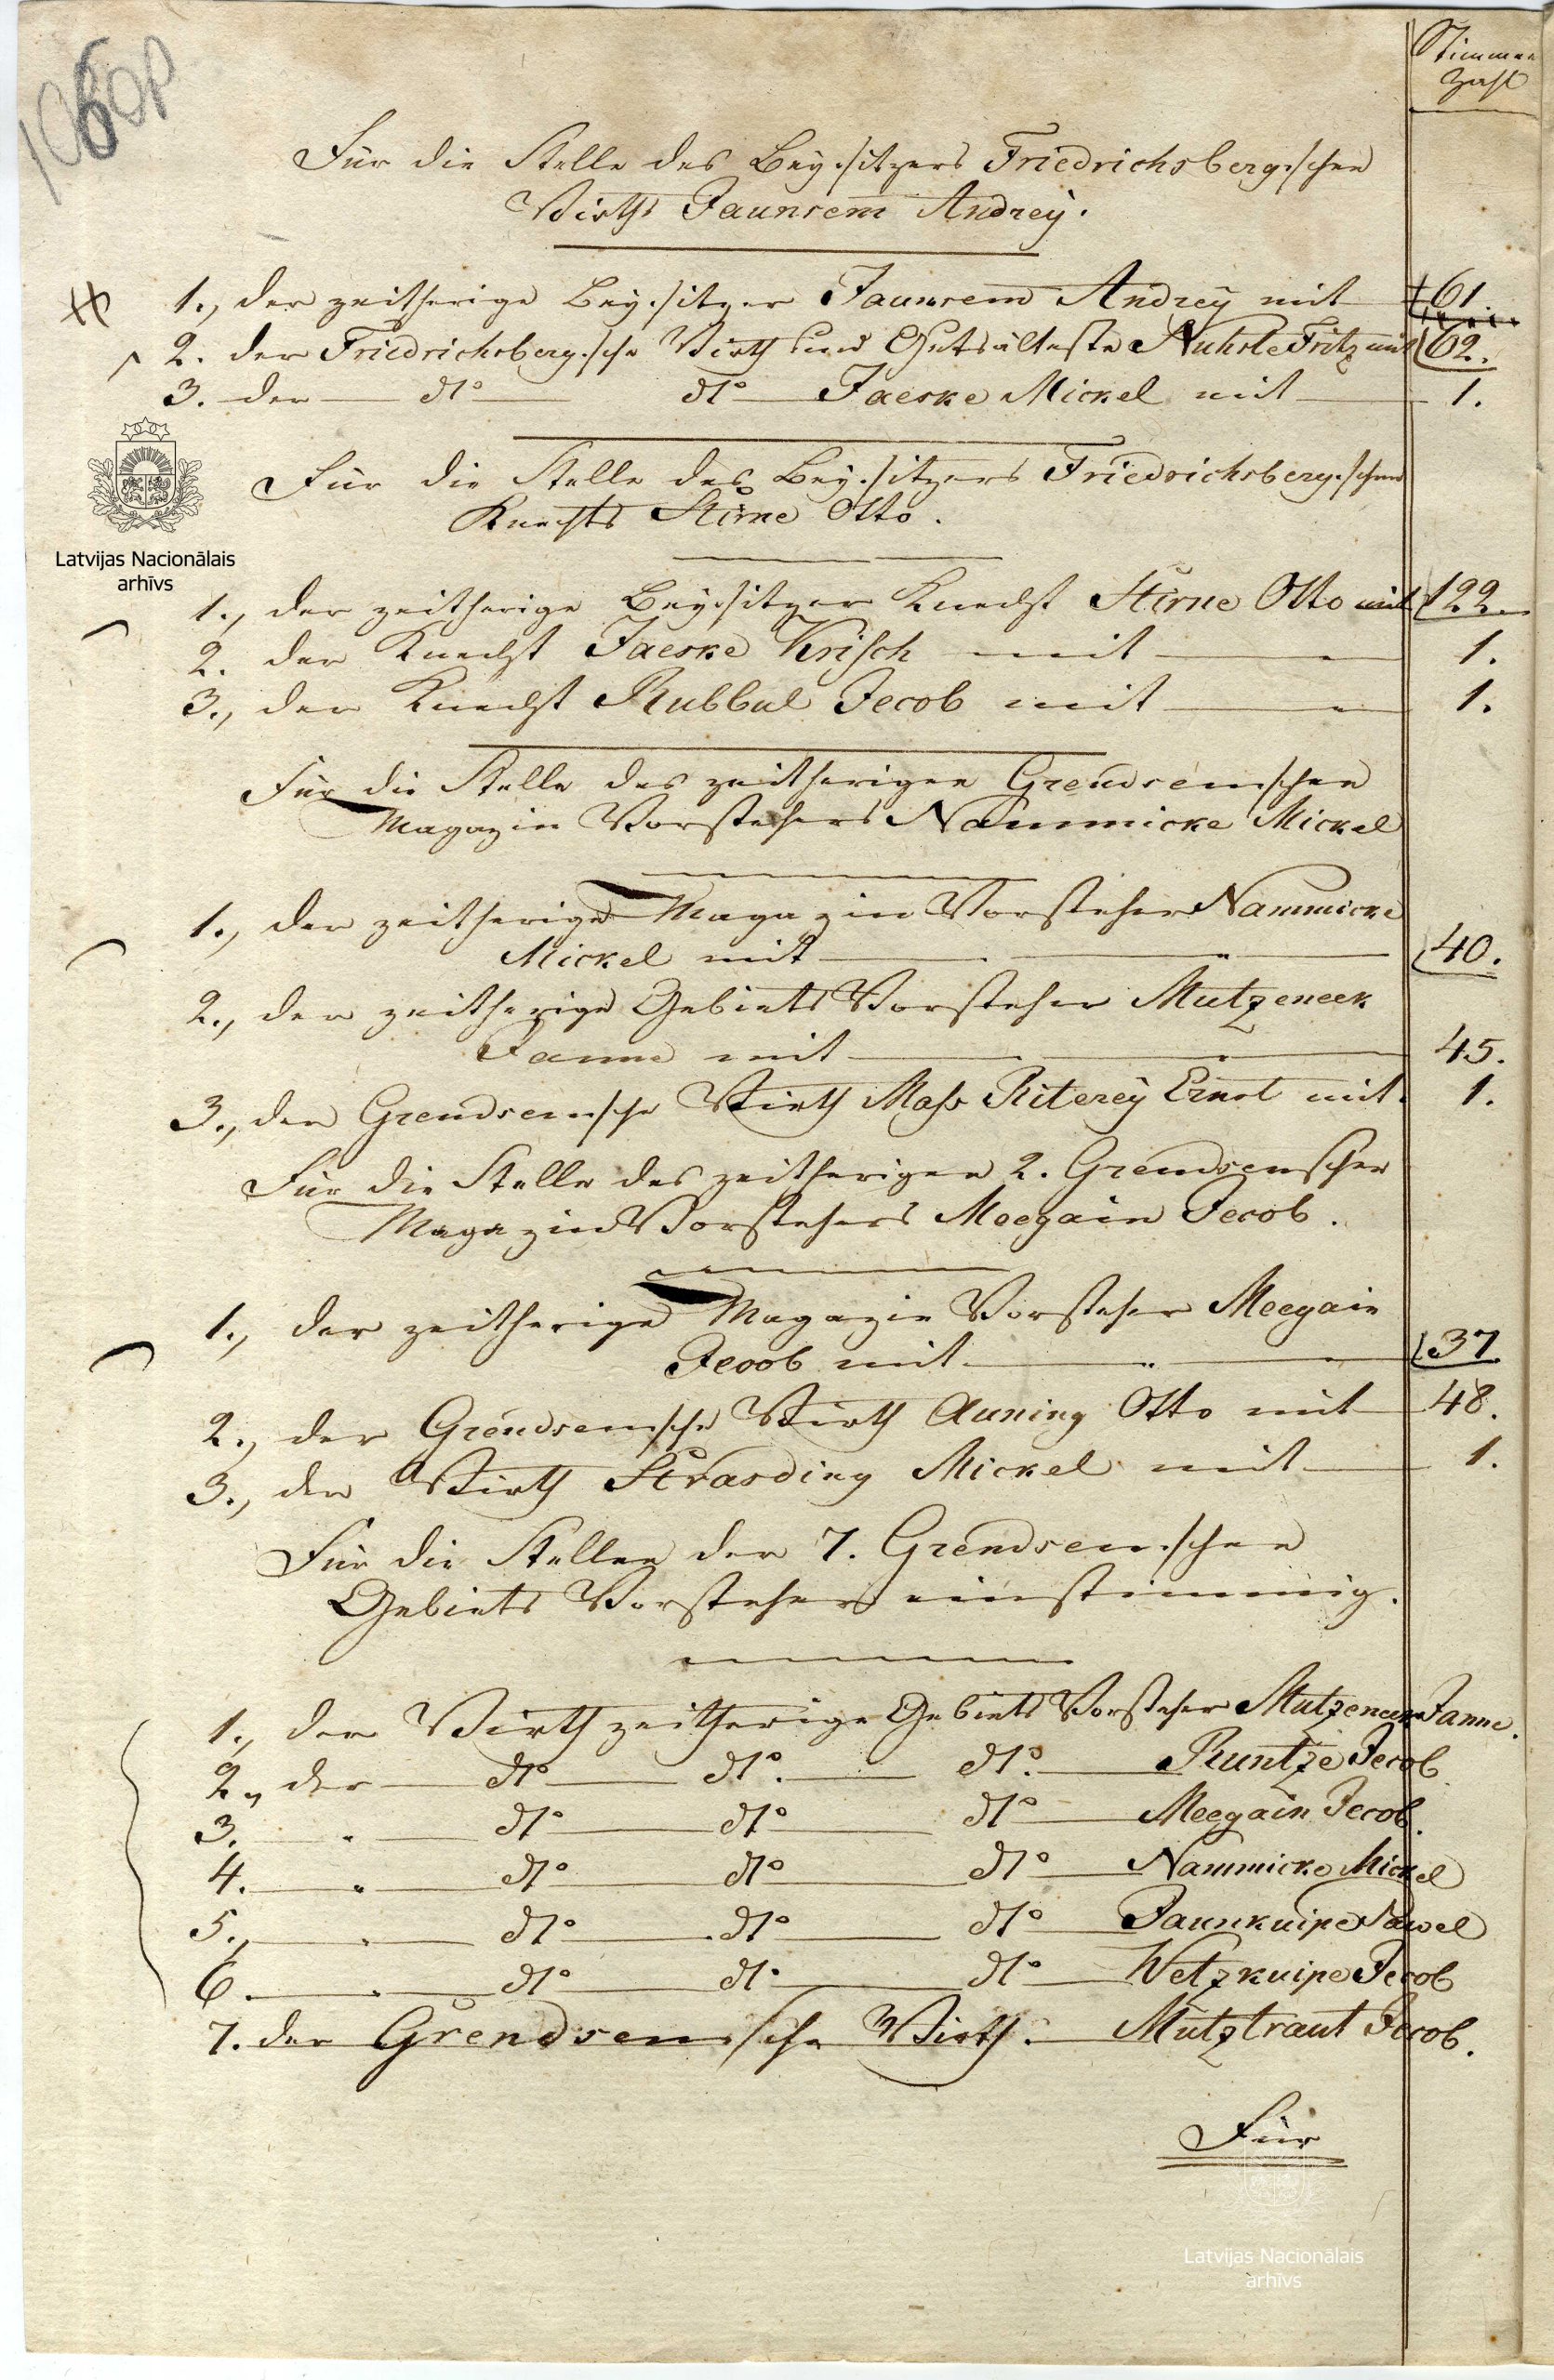 Stimmen
Zahl
106 op
Für die Stelle des Beysitzers Friedrichsbergschen
Wirths Jaunsem Andrey.
1., der zeitherige Beysitzer Jaunsem Andrey mit 61.
2. der Friedrichsbergsche Wirth und Gutsälteste Nuhrle Fritz mit 62.
3. der — dto — dto — Jaeske Mickel mit — 1.
Für die Stelle des Beysitzers Friedrichsbergschen
Knechts Stirne Otto.
Latvijas Nacionālais
arhīvs
1., der zeitherige Beysitzer Knecht Stirne Otto mit 122.
2. der Knecht Jaeske Krisch mit — 1.
3., der Knecht Rubbul Jecob mit — 1.
Für die Stelle des zeitherigen Grendsenschen
Magazin Vorstehers Nammicke Mickel
1., der zeitherige Magazin Vorsteher Nammicke
Mickel mit — 40.
2., der zeitherige Gebiets Vorsteher Mutzeneek
Janne mit — 45.
3., der Grendsensche Wirth Mass Riterey Ernst mit. 1.
Für die Stelle des zeitherigen 2. Grendsenschen
Magazin Vorstehers Meegain Jecob.
1., der zeitherige Magazin Vorsteher Meegain
Jecob mit — 37.
2., der Grendsensche Wirth Auning Otto mit 48.
3., der Wirth Strasding Mickel mit — 1.
Für die Stellen der 7. Grendsenschen
Gebiets Vorsteher einstimmig.
1., der Wirth zeitherige Gebiets Vorsteher Mutzeneek Janne.
2., der — dto — dto. — dto. — Runtze Jecob
3. — " — dto — dto — dto — Meegain Jecob.
4. — " — dto — dto — dto — Nammicke Mickel
5., — " — dto — dto — dto — Jaunkuipe Pawel
6. — " — dto — dto — dto — Wetzkuipe Jecob
7. der Grendsensche Wirth. — Mutztraut Jecob.
Für
Latvijas Nacionālais
arhīvs